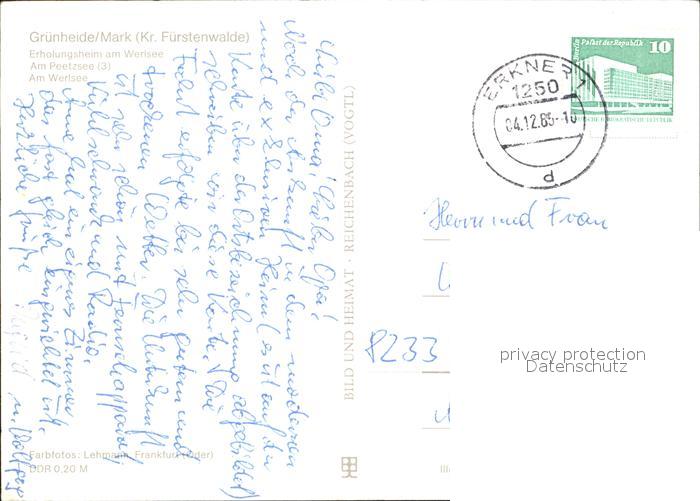 Grünheide/Mark (Kr. Fürstenwalde)
Erholungsheim am Werlsee
Am Peetzsee (3)
Am Werlsee
Liebe Oma! Lieber Opa!
Nach der Ankunft in dem modernen
und exklusiven Heim (es ist auf der
Karte über der Ortsbezeichnung abgebildet)
schreiben wir diese Karte. Die
Fahrt erfolgte bei sehr gutem und
trockenem Wetter. Die Unterkunft
ist sehr schön mit Fernsehapparat,
Kühlschrank und Radio.
hat ein eigenes Zimmer
das fast gleich eingerichtet ist.
Herzliche Grüße
u. Wolfgang
Farbfotos: Lehmann, Frankfurt (Oder)
DDR 0,20 M
BILD UND HEIMAT · REICHENBACH (VOGTL)
Palast der Republik
10
DEUTSCHE DEMOKRATISCHE REPUBLIK
ERKNER 1
1250
04.12.85-10
d
Herrn und Frau
8233
privacy protection
Datenschutz